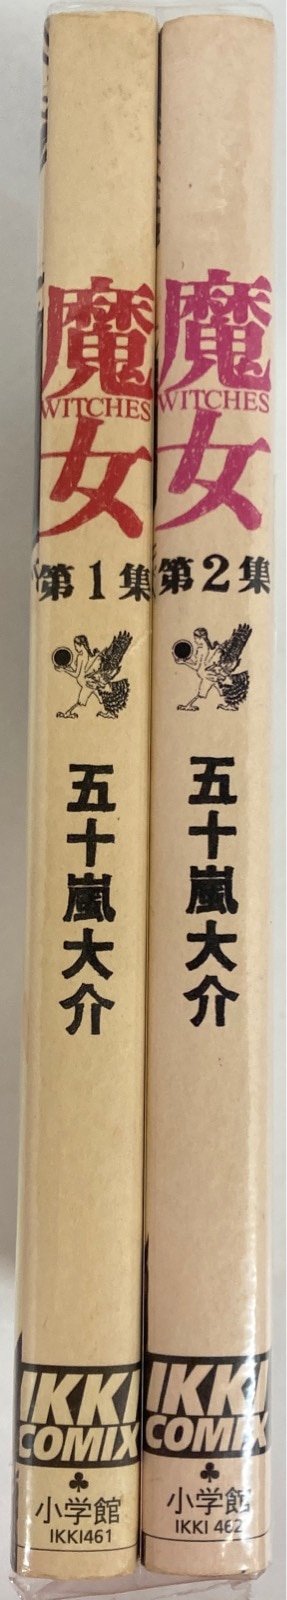 魔女
WITCHES
第1集
五十嵐大介
IKKI
COMIX
小学館
IKKI461
魔女
WITCHES
第2集
五十嵐大介
IKKI
COMIX
小学館
IKKI 462